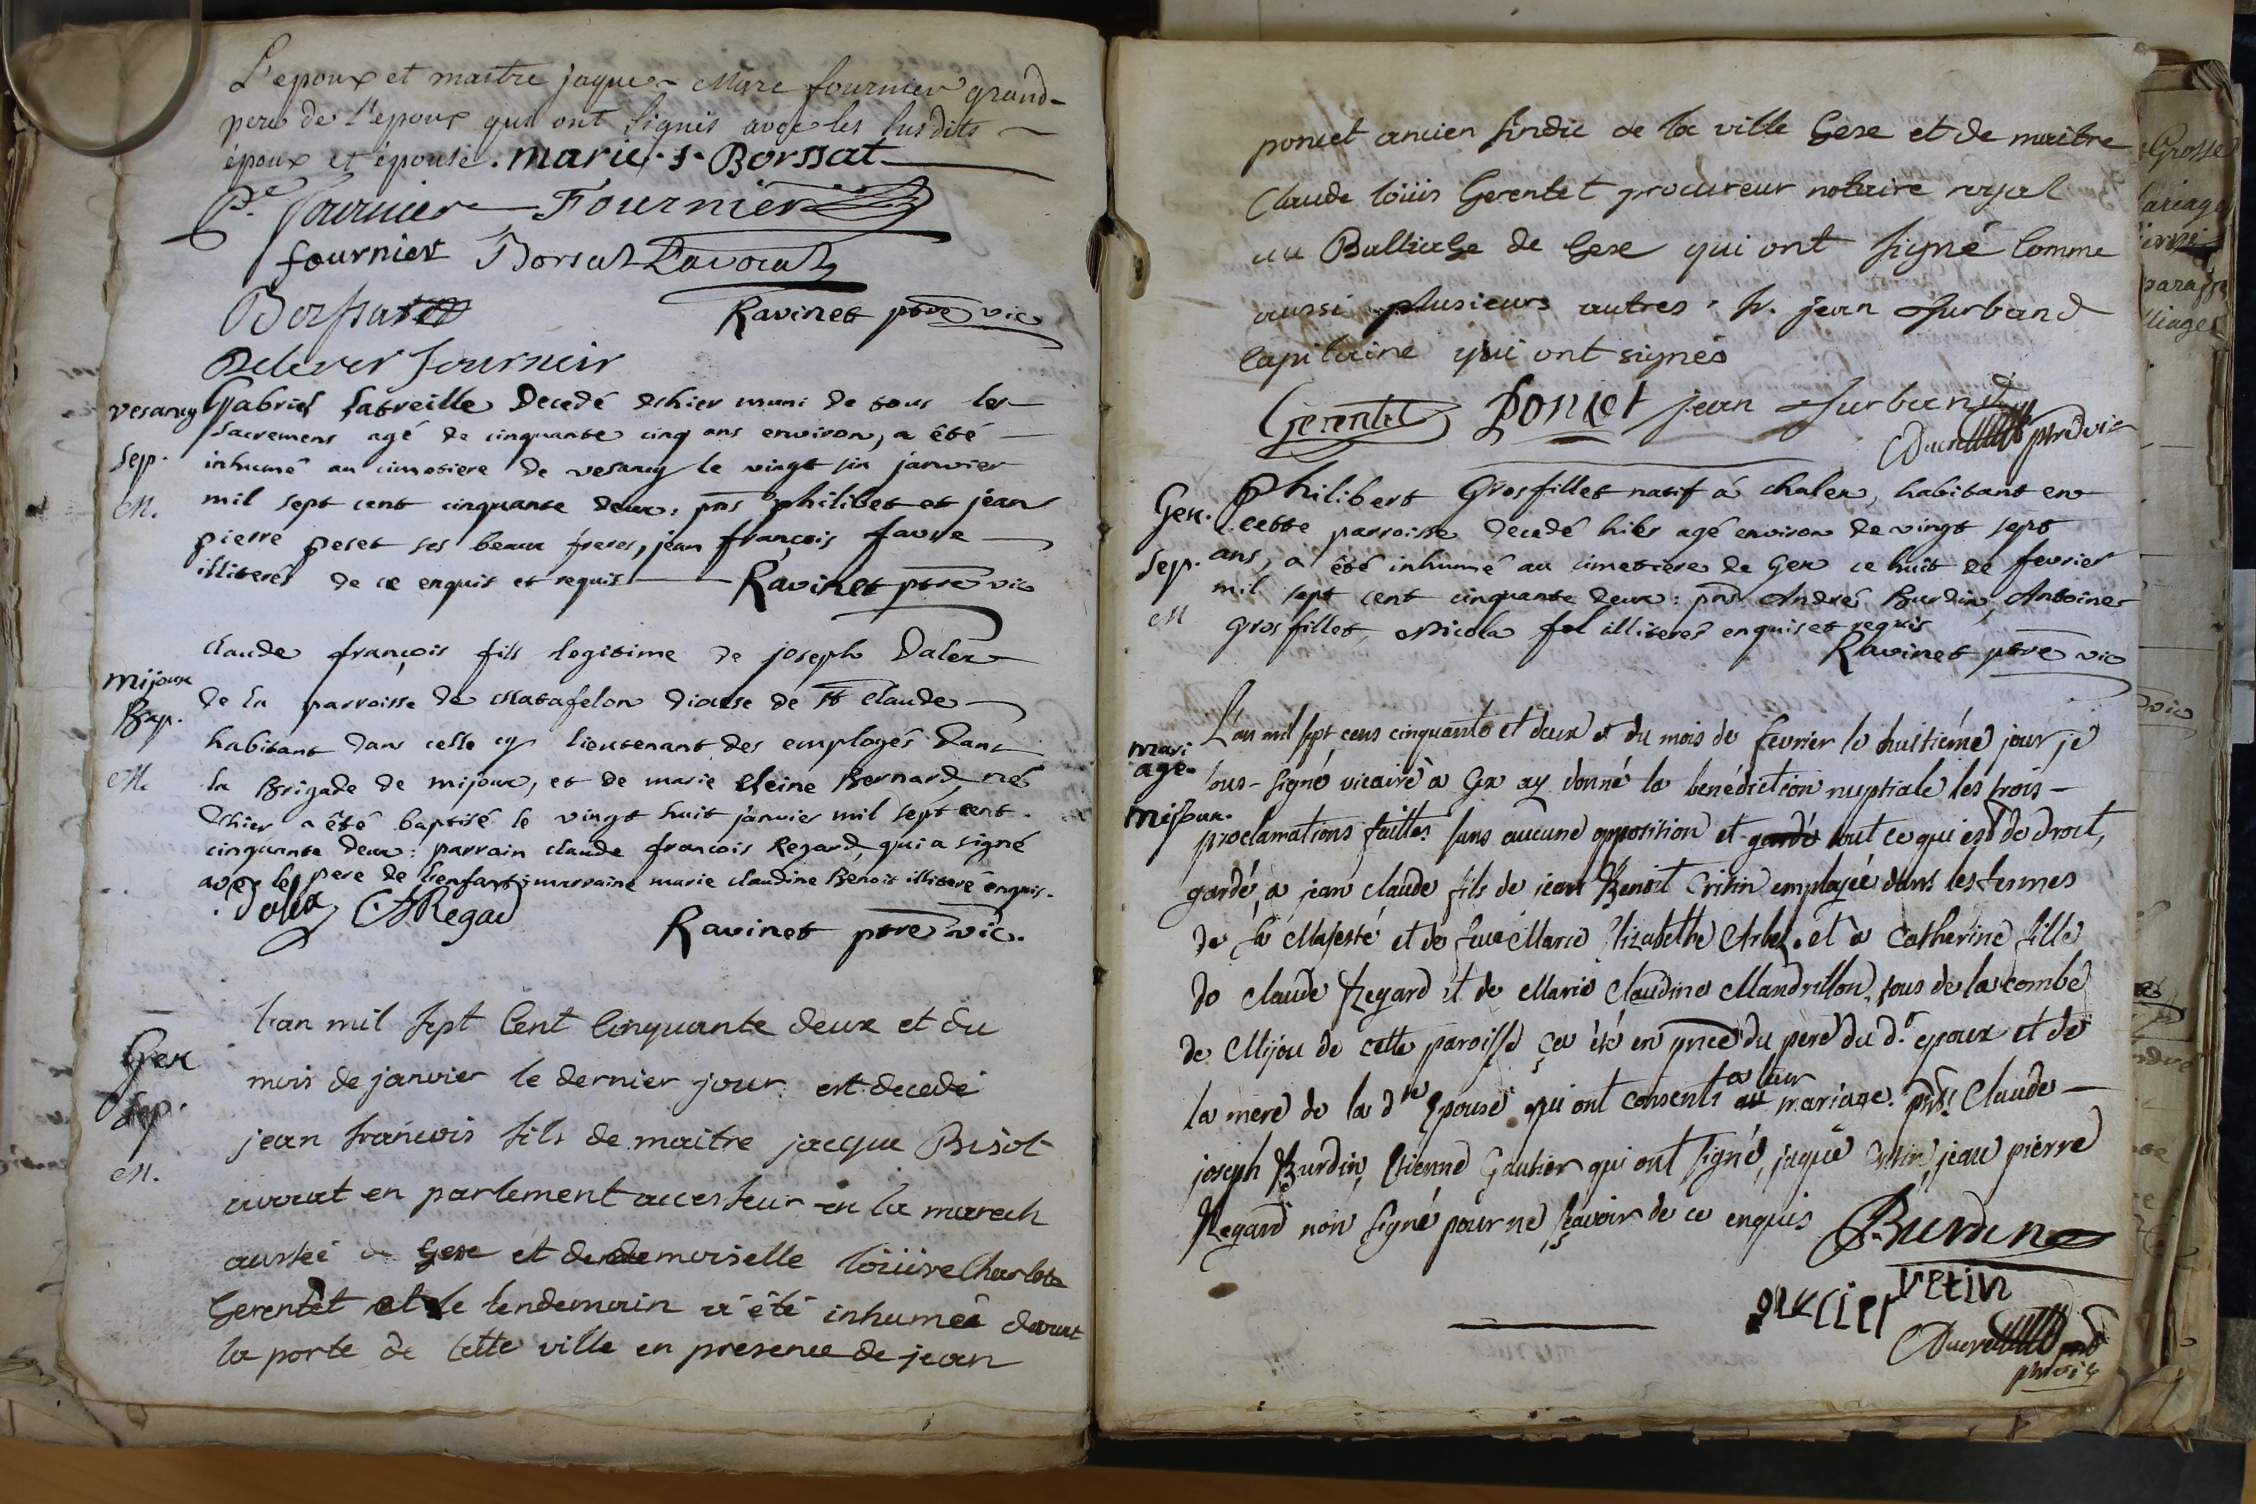 L'epoux et maitre jaque Marc fournier grand-
pere de l'epoux qui ont signés avec les susdits
époux et épouse. marie. s. Borssat
Pe. fournier Fournier
fournier Borsat Lavocat
Borssat
Ravinet ptre vic
fournier
vesancy
Sep.
M.
Gabriel Latreille Decedé dshier muni de tous les
sacremens agé de cinquante cinq ans environ, a êté
inhumé au cimetiere de vesancy le vingt six janvier
mil sept cent cinquante deux: pns philibet et jean
pierre peset ses beaux freres, jean françois favre
illiterés de ce enquis et requis Ravinet ptre vic
mijoux
Bap.
M.
claude françois fils legitime de joseph Dalex
de la parroisse de Matafelon diocese de St Claude
habitant dans celle cy lieutenant des employés dans
la Brigade de mijoux, et de marie Reine Bernard né
dshier a êté baptisé le vingt huit janvier mil sept cent
cinquante deux: parrain claude françois Regard, qui a signé
avec le pere de l'enfant; marraine marie claudine Benoit illiteré enquis.
Dalex CF Regad
Ravinet ptre vic.
Gex
Sep.
M.
l'an mil sept Cent Cinquante deux et du
mois de janvier le dernier jour est decedé
jean francois fils de maitre jacque Bisot
avocat en parlement accesseur en la marech
aussée de Gex et de demoiselle loüise Charlote
Gerentet et le lendemain a êté inhumé devant
la porte de cette ville en presence de jean
poncet ancien sindic de la ville Gexe et de maitre
Claude loüis Gerentet procureur notaire royal
au Balliage de Gexe qui ont signé Comme
aussi plusieurs autres. Sr. jean Surband
Capitaine qui ont signés
Gerentet Poncet jean Surband
ptre vic
Gex.
Sep.
M
Philibert Grosfillet natif á chalex, habitant en
cette parroisse decedé hier agé environ de vingt sept
ans, a été inhumé au cimetiere de Gex ce huit de fevrier
mil sept cent cinquante deux: pns André Burdin, Antoine
Grosfillet, Nicola fol illiterés enquis et requis
Ravinet ptre vic
mari
age.
mijoux.
L'an mil sept cens cinquante et deux et du mois de fevrier le huitiéme jour je
sous-signé vicaire à Gex ay donné la benédiction nuptiale les trois
proclamations faittes sans aucune opposition et gardé tout ce qui est de droit,
gardé, a jean claude fils de jean Benoit Critin employée dans les fermes
de sa Majesté et de feue Marie Elizabethe Arbel. et à Catherine fille
de Claude Regard et de Marie Claudine Mandrillon, tous de la combe
de Mijou de cette paroisse ça été en pnce du pere du dt epoux et de
la mere de la dte Epouse qui ont consenti a leur mariage. pns Claude
joseph Burdin, Etienne Gautier qui ont signé, jaque Critin, jean pierre
Regard non signé pour ne sçavoir de ce enquis Burdin